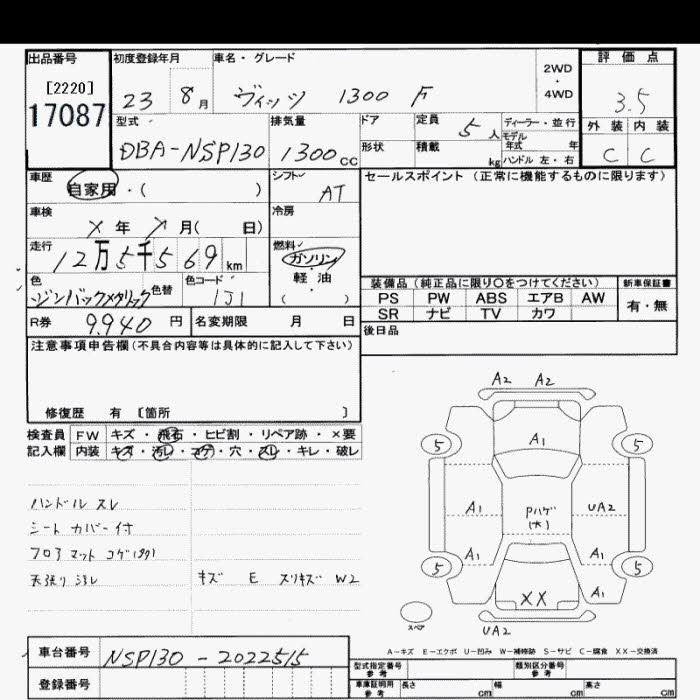 出品番号 初度登録年月 車名・グレード 2WD・4WD 評価点
[2220]
17087
23 8月 ヴィッツ 1300 F 3.5
型式 排気量 ドア 定員 5人 ディーラー・並行 外装 内装
モデル年式 年
DBA-NSP130 1300cc 形状 積載 kg ハンドル 左・右 C C
車歴 自家用・( ) シフト AT セールスポイント(正常に機能するものに限ります)
車検 年 月( 日) 冷房
走行 12万5千569km 燃料 ガソリン
軽・油
( )
色 色替 色コード 1J1
装備品(純正品に限り○をつけてください) 新車保証書
PS PW ABS エアB AW 有・無
SR ナビ TV カワ
R券 9,940円 名変期限 月 日 後日品
注意事項申告欄(不具合内容等は具体的に記入して下さい)
修復歴 有 〔箇所 〕
検査員 FW キズ・飛石・ヒビ割・リペア跡・×要
記入欄 内装 キズ・汚レ・コゲ・穴・スレ・キレ・破レ
ハンドル スレ
シート カバー付
フロアマット コゲ
天張り ヨゴレ キズ E スリキズ W2
A2 A2
5 A1 5
A1 Pハゲ(大) UA2
A1 A1
5 5
XX A1
スペア UA2
A-キズ E-エクボ U-凹み W-補修跡 S-サビ C-腐食 XX-交換済
車台番号 NSP130-2022515
型式指定番号 参考 類別区分番号 参考
登録番号 車庫証明用 参考 長さ cm 幅 cm 高さ cm